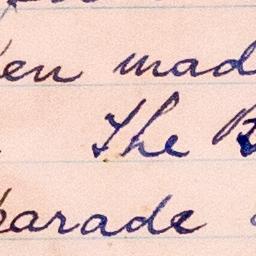 en mad
The B
parade